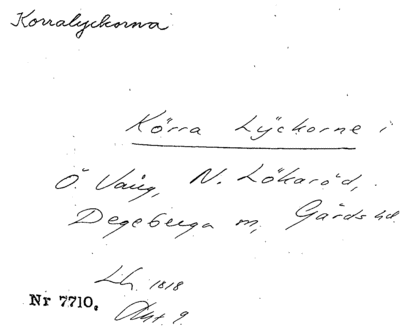 Korralyckorna
Körra Lyckorne i
Ö. Vång, N. Lökaröd,
Degeberga m, Gärds hd.
Lh. 1818
Nr 7710,
Akt. 9.